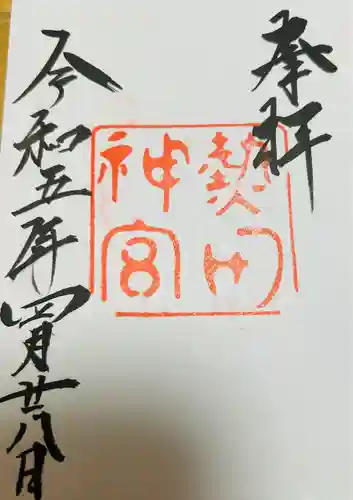 奉拝
熱田
神宮
令和五年四月廿八日